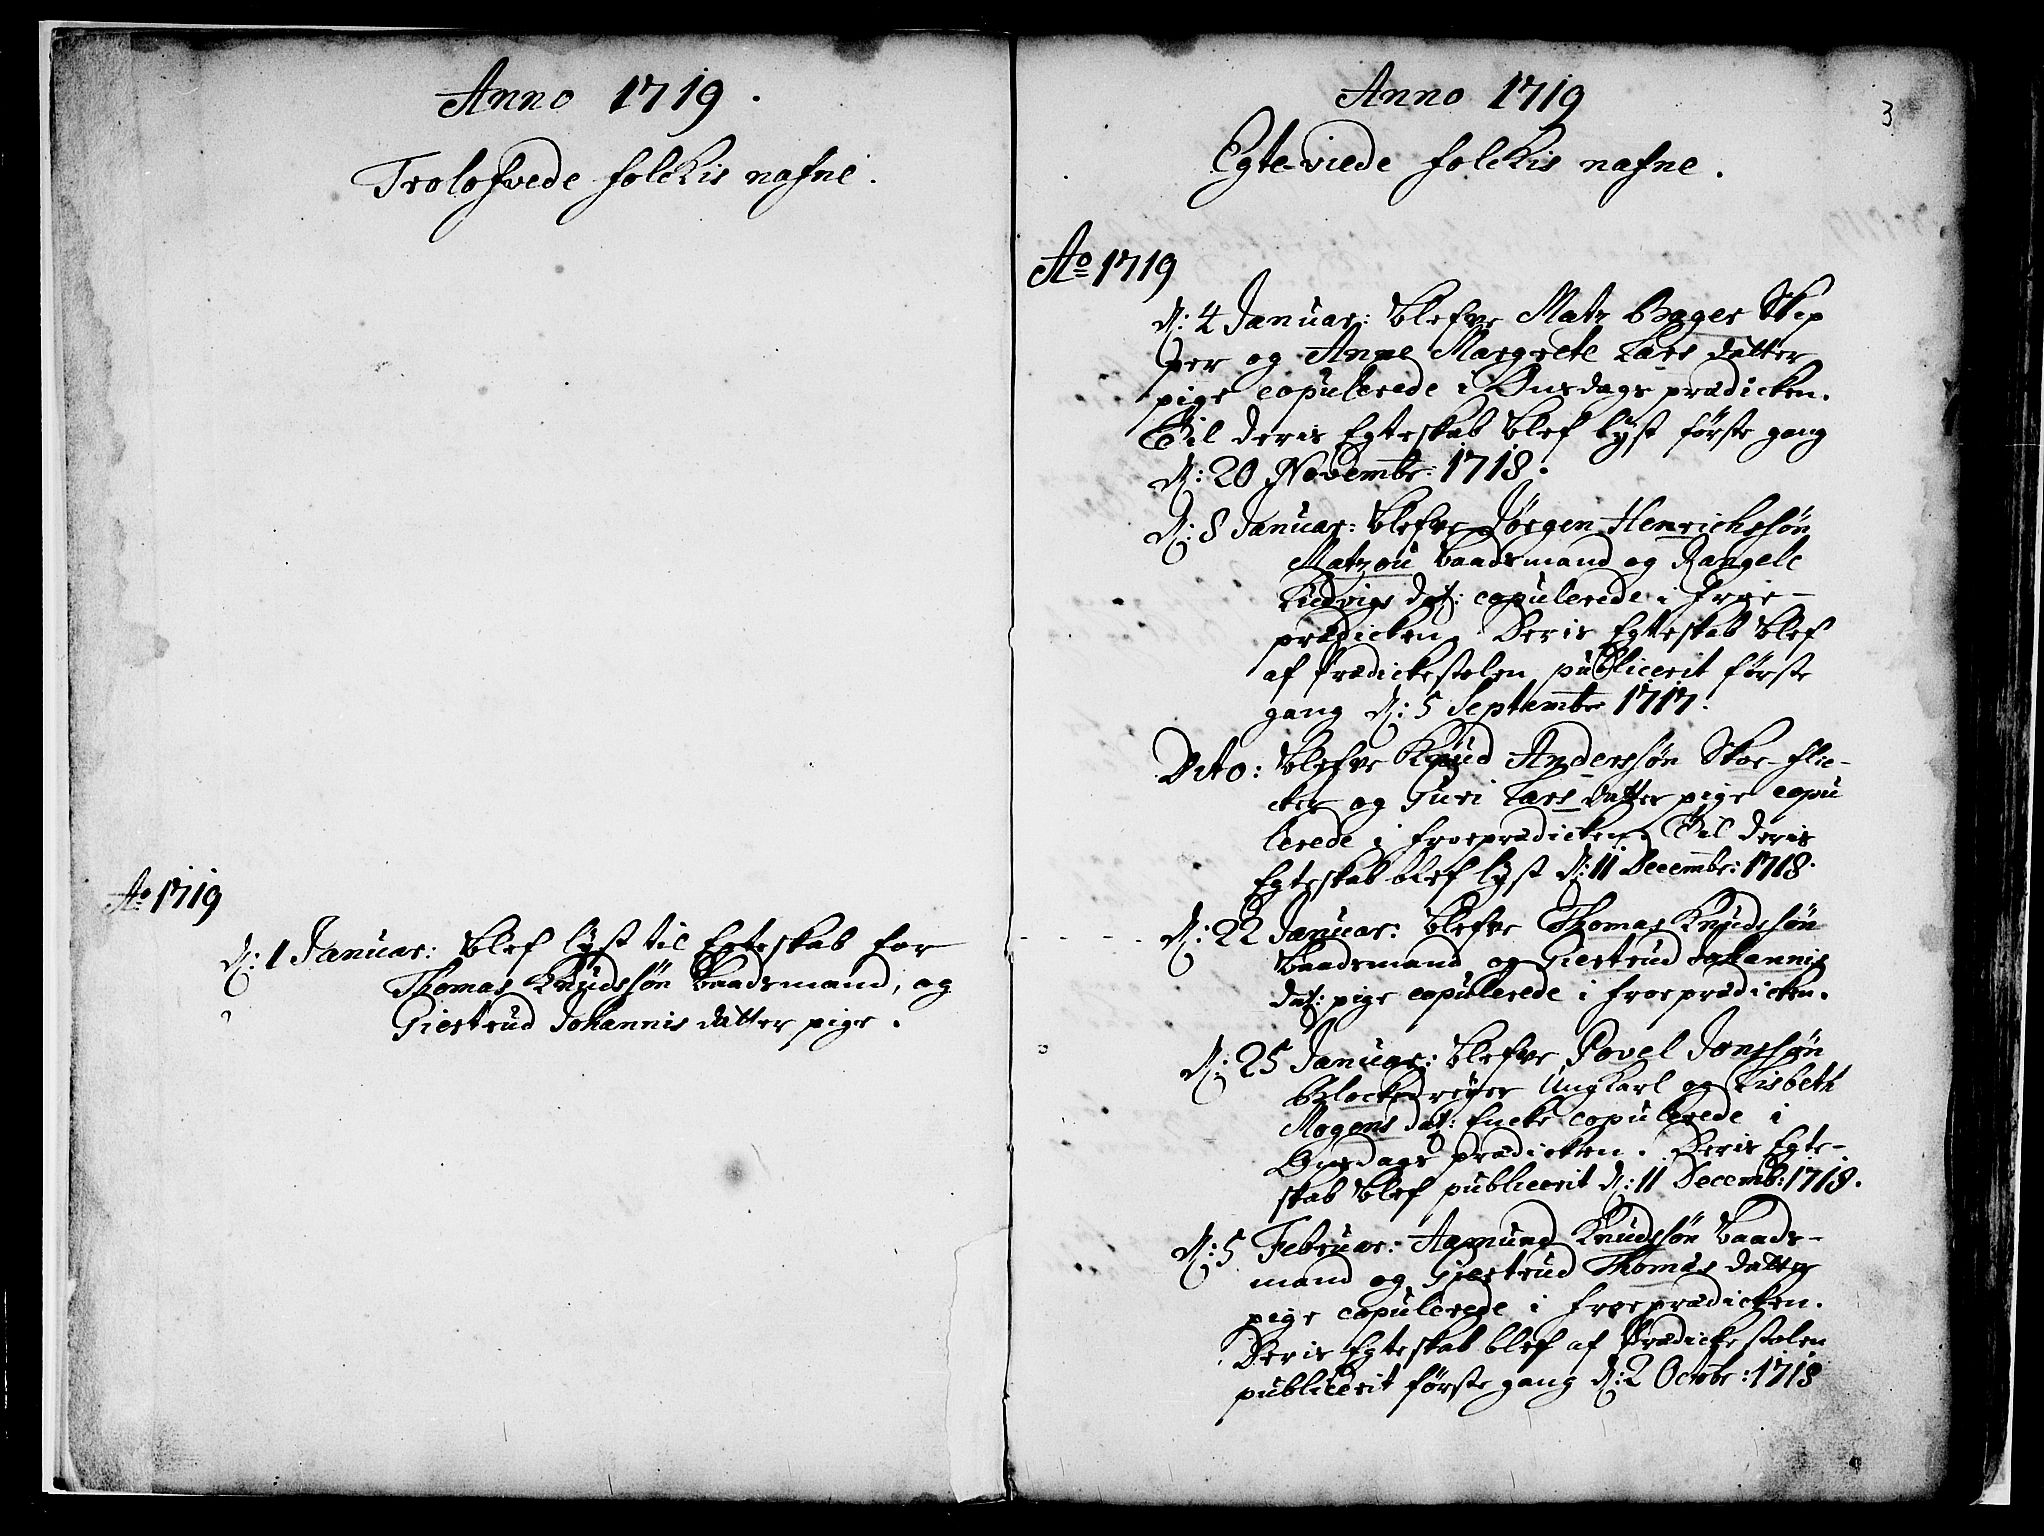 Anno 1719.
Trolofvede folckis nafne.
Ao 1719
d: 1 Januar: blef lyst til Egteskab for
Thomas Knudssøn baadsmand, og
Giertrud Johannis datter pige.
Anno 1719
3
Egteviede folckis nafne.
Ao 1719
d: 4 Januar: blefve Matz Bager Skip
per og Anne Margrete Lars datter
pige copulerede i Onsdags prædicken.
Til deris Egteskab blef lyst første gang
d: 20 Novembr: 1718.
d: 8 Januar: blefve Jørgen Henrichssøn
Matzou baadsmand og Rangele
Ludvigs dat: copulerede i froe-
prædicken. Deris Egteskab blef
af prædickestolen publicerit første
gang d: 5 Septembr 1717.
Dito: blefve Knud Anderssøn Skoe-flic-
ker og Guri Lars datter pige copu
lerede i froeprædicken. Til deris
Egteskab blef lyst d: 11 Decembr: 1718.
d: 22 Januar: blefve Thomas Knudssøn
baadsmand og Giertrud Johannis
dat: pige copulerede i froeprædicken.
d: 25 Januar: blefve Povel Jonssøn
Blockedreyer Ungkarl og Lisbeth
Mogens dat: Encke copulerede i
Onsdags prædicken. Deris Egte-
skab blef publicerit d: 11 Decemb: 1718.
d: 5 Februar: Aamund Knudssøn baads-
mand og Giertrud Thomas datter
pige copulerede i froeprædicken.
Deris Egteskab blef af Prædickestolen
publicerit første gang d: 2 Octobr: 1718